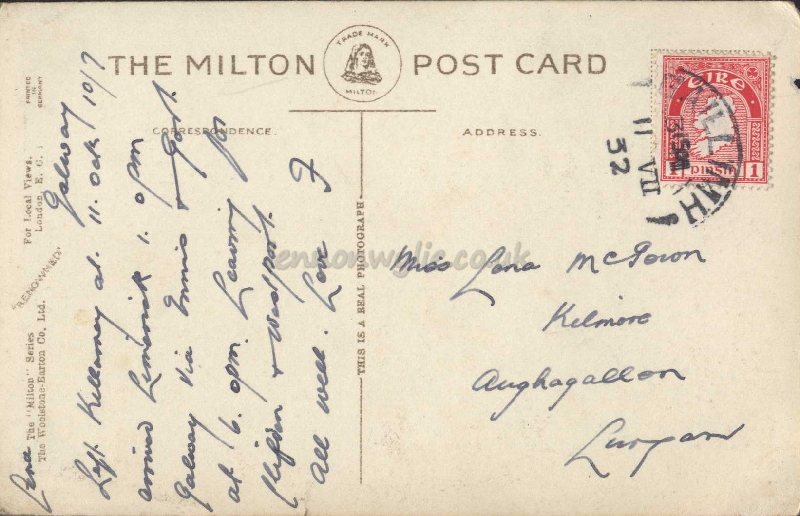 THE MILTON POST CARD
TRADE MARK
MILTON
CORRESPONDENCE.
ADDRESS.
ÉIRE
1 PINSIN 1
GAILLIMH
11 VII
32
PRINTED IN GERMANY
For Local Views.
London E. C. 1
"RENOWNED"
The "Milton" Series
The Woolstone-Barton Co. Ltd.
THIS IS A REAL PHOTOGRAPH
Galway
10/7
Lena
Left Killarney at 11. oak
arrived Limerick 1. opm
Galway via Ennis & Gort.
at 6. opm. Leaving for
Clifden & Westport.
All well. Love F
Miss Lena McGown
Kilmore
Aughagallon
Lurgan
lennonwylie.co.uk